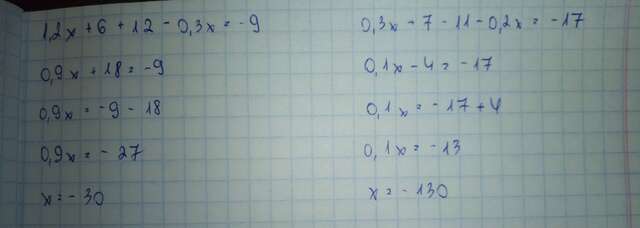 1,2x + 6 + 12 - 0,3x = -9
0,9x + 18 = -9
0,9x = -9 - 18
0,9x = - 27
x = - 30
0,3x + 7 - 11 - 0,2x = -17
0,1x - 4 = -17
0,1x = -17 + 4
0,1x = -13
x = - 130